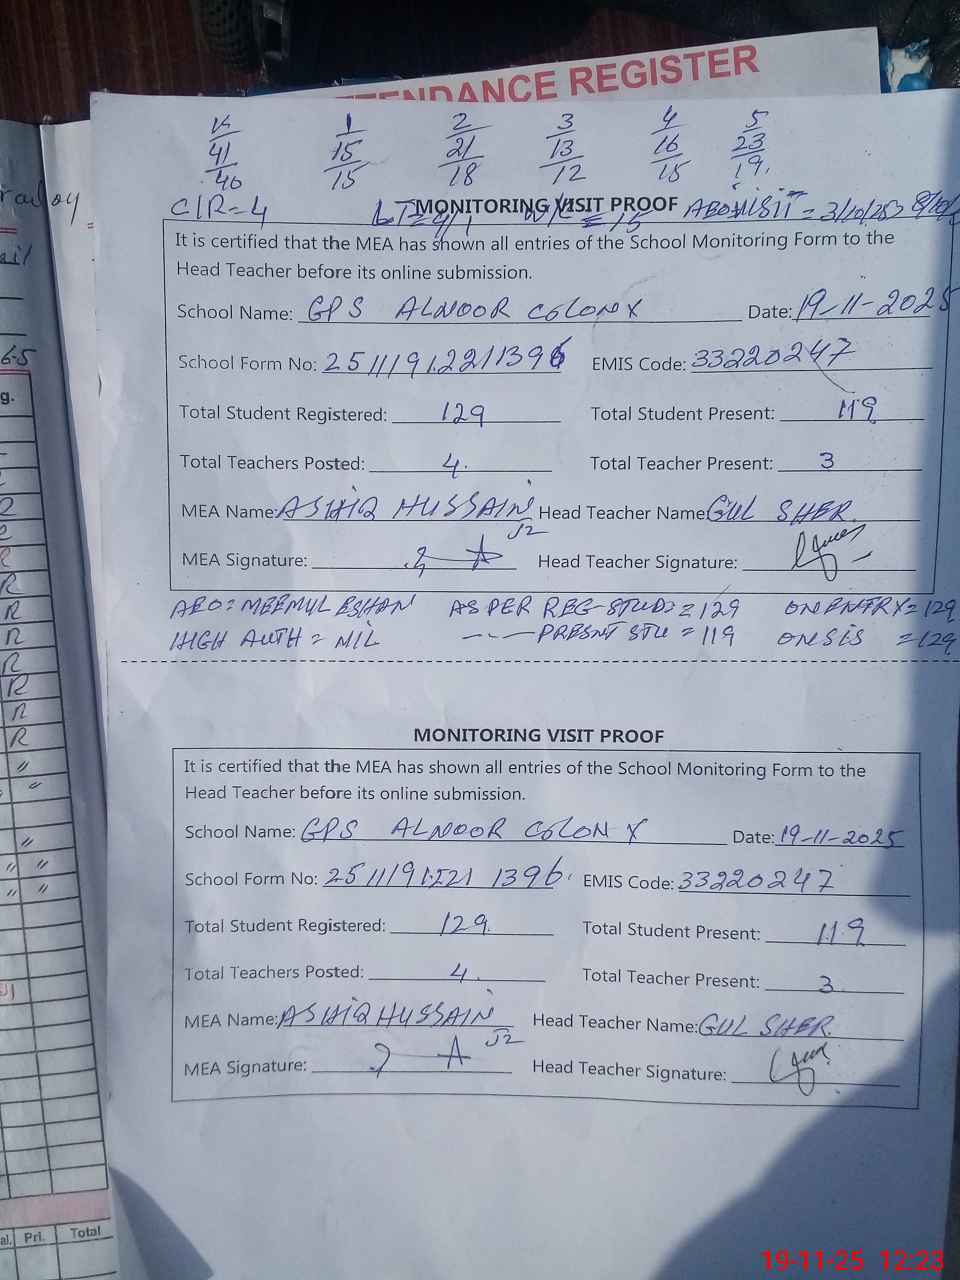 ATTENDANCE REGISTER
K 1 2 3 4 5
41 15 21 13 16 23
40 15 18 12 15 19
C/R=4
MONITORING VISIT PROOF
It is certified that the MEA has shown all entries of the School Monitoring Form to the
Head Teacher before its online submission.
School Name: GPS ALNOOR COLONY Date: 19-11-2025
School Form No: 25111912211396 EMIS Code: 33220247
Total Student Registered: 129 Total Student Present: 119
Total Teachers Posted: 4. Total Teacher Present: 3
MEA Name: ASHIQ HUSSAIN Head Teacher Name: GUL SHER.
J2
MEA Signature: Head Teacher Signature:
AEO= ESHAN AS PER REG-STUD:=129 ON ENTRY=129
HIGH AUTH = NIL PRESNT STU =119 ON SIS =129
MONITORING VISIT PROOF
It is certified that the MEA has shown all entries of the School Monitoring Form to the
Head Teacher before its online submission.
School Name: GPS ALNOOR COLONY Date: 19-11-2025
School Form No: EMIS Code: 33220247
Total Student Registered: 129. Total Student Present: 119
Total Teachers Posted: 4. Total Teacher Present: 3.
MEA Name: ASHIQ HUSSAIN Head Teacher Name: GUL SHER.
J2
MEA Signature: Head Teacher Signature:
Pri. Total
19-11-25 12:23